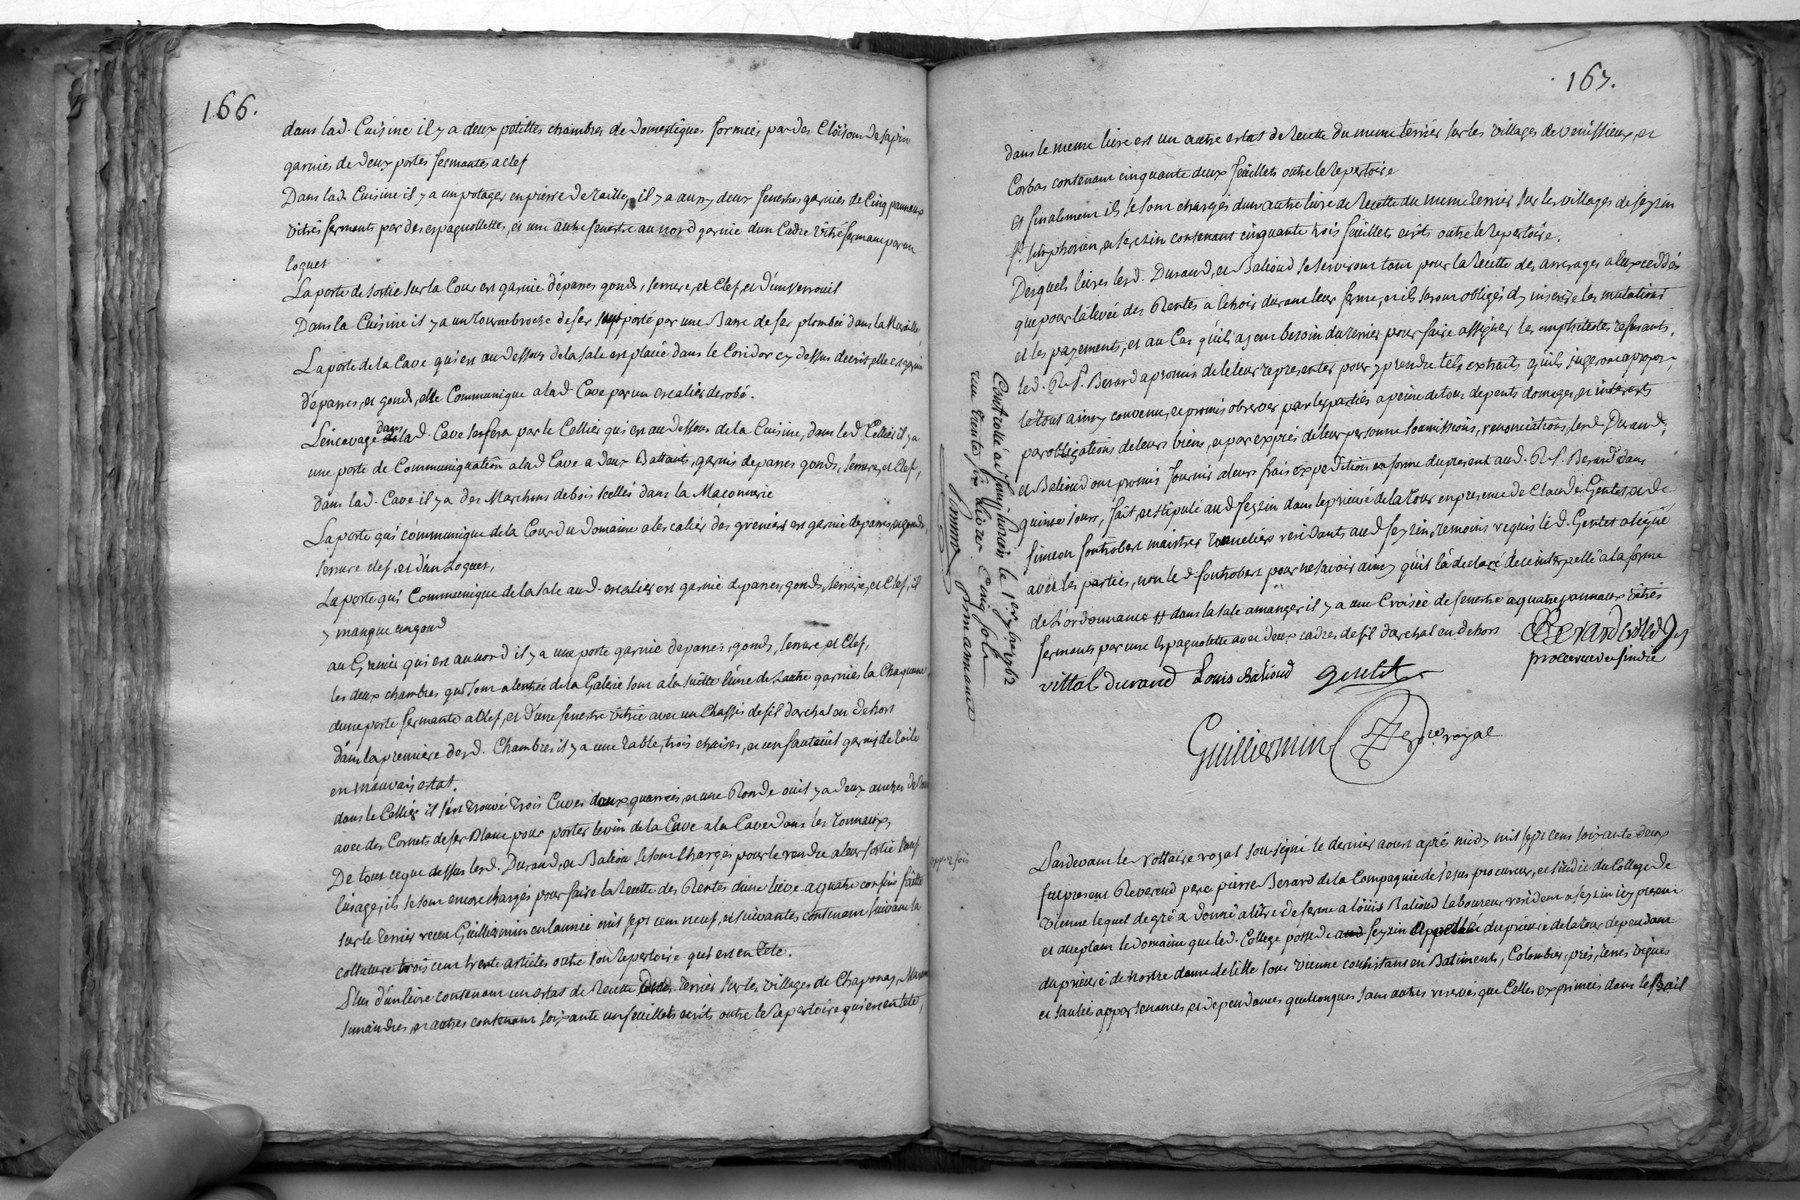 166.
dans lad. Cuisine il y a deux petittes chambres de domestiques formées par des Cloisons de sapin
garnies de deux portes fermantes a clef
Dans lad. Cuisine il y a un potager en pierre de taille, il y a aussy deux fenestres garnies de Cinq panneaux
vitrés ferments par des espagnollettes, et une autre fenestre au nord garnie d'un Cadre vitré fermant par un
loquet
La porte de sortie sur la Cour est garnie d'épares gonds, serrure, et Clef, et d'un verrouil
Dans la Cuisine il y a un tournebroche de fer porté par une Barre de fer plombée dans la Muraille
La porte de la Cave qui est au dessous de la sale est placée dans le Coridor cy dessus decrit, elle est garnie
d'épares, et gonds, elle Communique a lad Cave par un escalier derobé.
L'encavage dans lad. Cave se fera par le Cellier qui est au dessous de la Cuisine, dans led Cellier il y a
une porte de Communiquation a lad Cave a deux Battants, garnis depares gonds, serrure, et Clef,
dans lad. Cave il y a des Marchons de bois scellés dans la Maçonnerie
La porte qui communique de la Cour du Domaine a lescalier des greniers est garnie depares, et gonds,
serrure clef, et d'un Loquet,
La porte qui Communique de la sale aud. escalier est garnie depares, gonds, serrure, et Clef, il
y manque un gond
au Grenier qui est au nord il y a une porte garnie depares, gonds, serrure et Clef,
les deux chambres qui sont a lentrée de la Galerie sont a la suitte l'une de Lautre garnies la Chaquune
dune porte fermante a Clef, et d'une fenestre vitrée avec un Chassis de fil darchal en dehors
dans la premiere desd. Chambres il y a une table, trois chaises, et un fauteuil garnis de toile
en mauvais estat.
dans le Cellier il s'est trouvé trois Cuves deux quarrées, et une Ronde ou il y a deux cercles de
avec des Cornets de fer Blanc pour porter le vin de la Cuve a la Cave dans les Tonneaux,
De tout ce que dessus lesd. Durand, et Baliou se sont Chargés pour le rendre a leur sortie sauf
l'usage, ils se sont encore chargés pour faire la Recette des Rentes d'une liève a quatre confins faitte
sur le terrier receu Guilliermin en l'année mil sept cent neuf, et suivantes contenant suivant la
collature trois cent trente articles outre son Repertoire qui est en tete.
Plus d'un livre contenant un estat de Recette terrier sur les villages de Chaponay,
simandres, et autres contenant soixante un feuillets ecrits outre le Repertoire qui est en tete,
167.
dans le meme livre est un autre estat de Recette du meme terrier sur les villages de venissieux, et
Corbas contenant cinquante deux feuillets outre le Repertoire
Et finalement ils se sont chargés d'un autre livre de Recette du meme terrier sur les villages de feyzin
St. simphorien, et serezin contenant cinquante trois feuillets ecrits outre le Repertoire.
Desquels livres lesd. Durand, et Balioud se serviront tant pour la Recette des arrerages a leux cedés
que pour la levée des Rentes a lehoir durant leur ferme, et ils seront obligés dy inserer les mutations
et les payements, et au Cas qu'ils ayent besoin du terrier pour faire assigner les emphiteotes refusants,
led. R.P. Berard a promis de le leur representer pour y prendre tels extraits qu'ils jugeront a propos,
le tout ainsy convenu, et promis observer par les parties a peine de tous depents domages, et interests
par obligations de leurs biens, et par exprés de leur personne soumissions, renonciations, lesd Durand,
et Balioud ont promis fournir a leurs frais expedition en forme du present aud. R.P. Berard dans
quinse Jours, fait, et stipulé aud feyzin dans le prieuré de la tour en presence de Claude Gentet, et de
simeon fontrobert maistres tonneliers residants aud feyzin, temoins requis led. Gentet a signé
avec les parties, non led fontrobert pour ne savoir ainsy qu'il la declaré de ce interpellé a la forme
de L'ordonnance # dans la sale a manger il y a une Croisée de fenestre a quatre panneaux vitrés
fermants par une espagnolette avec deux cadres de fil darchal en dehors
Berard
procureur et sindic
vittal durand Louis Balioud gentet
Guilliermin Nre. royal
Controllé a St simphorien le 1er. 7bre 1762
reçu trente livres Cinq sols
Pardevant le Nottaire royal soussigné le dernier aoust aprés midy mil sept cent soixante deux
fut present Reverend pere pierre Berard de la Compagnie de Jesus procureur, et sindic du College de
Vienne lequel de gré a donné a titre de ferme a Loüis Balioud laboureur residant a feyzin icy present
et acceptant le domaine que led. College possede feyzin appellé du prieuré de la tour dependant
du prieuré de Nostre dame de l'isle sous Vienne consistant en Batiments, Colombier, prés, terres vignes
et saulées appartenances, et dependances quelconques sans autres reserves que Celles exprimées dans le Bail